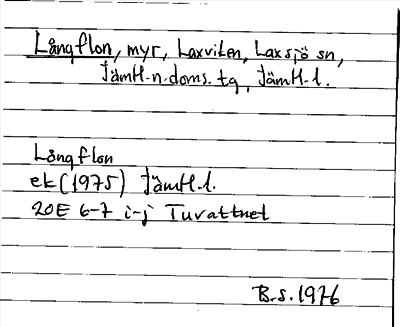 Långflon, myr, Laxviken, Laxsjö sn,
Jämtl. n. doms. tg, Jämtl. l.
Långflon
ek (1975) Jämtl. l.
20E 6-7 i-j Tuvattnet
B.S. 1976